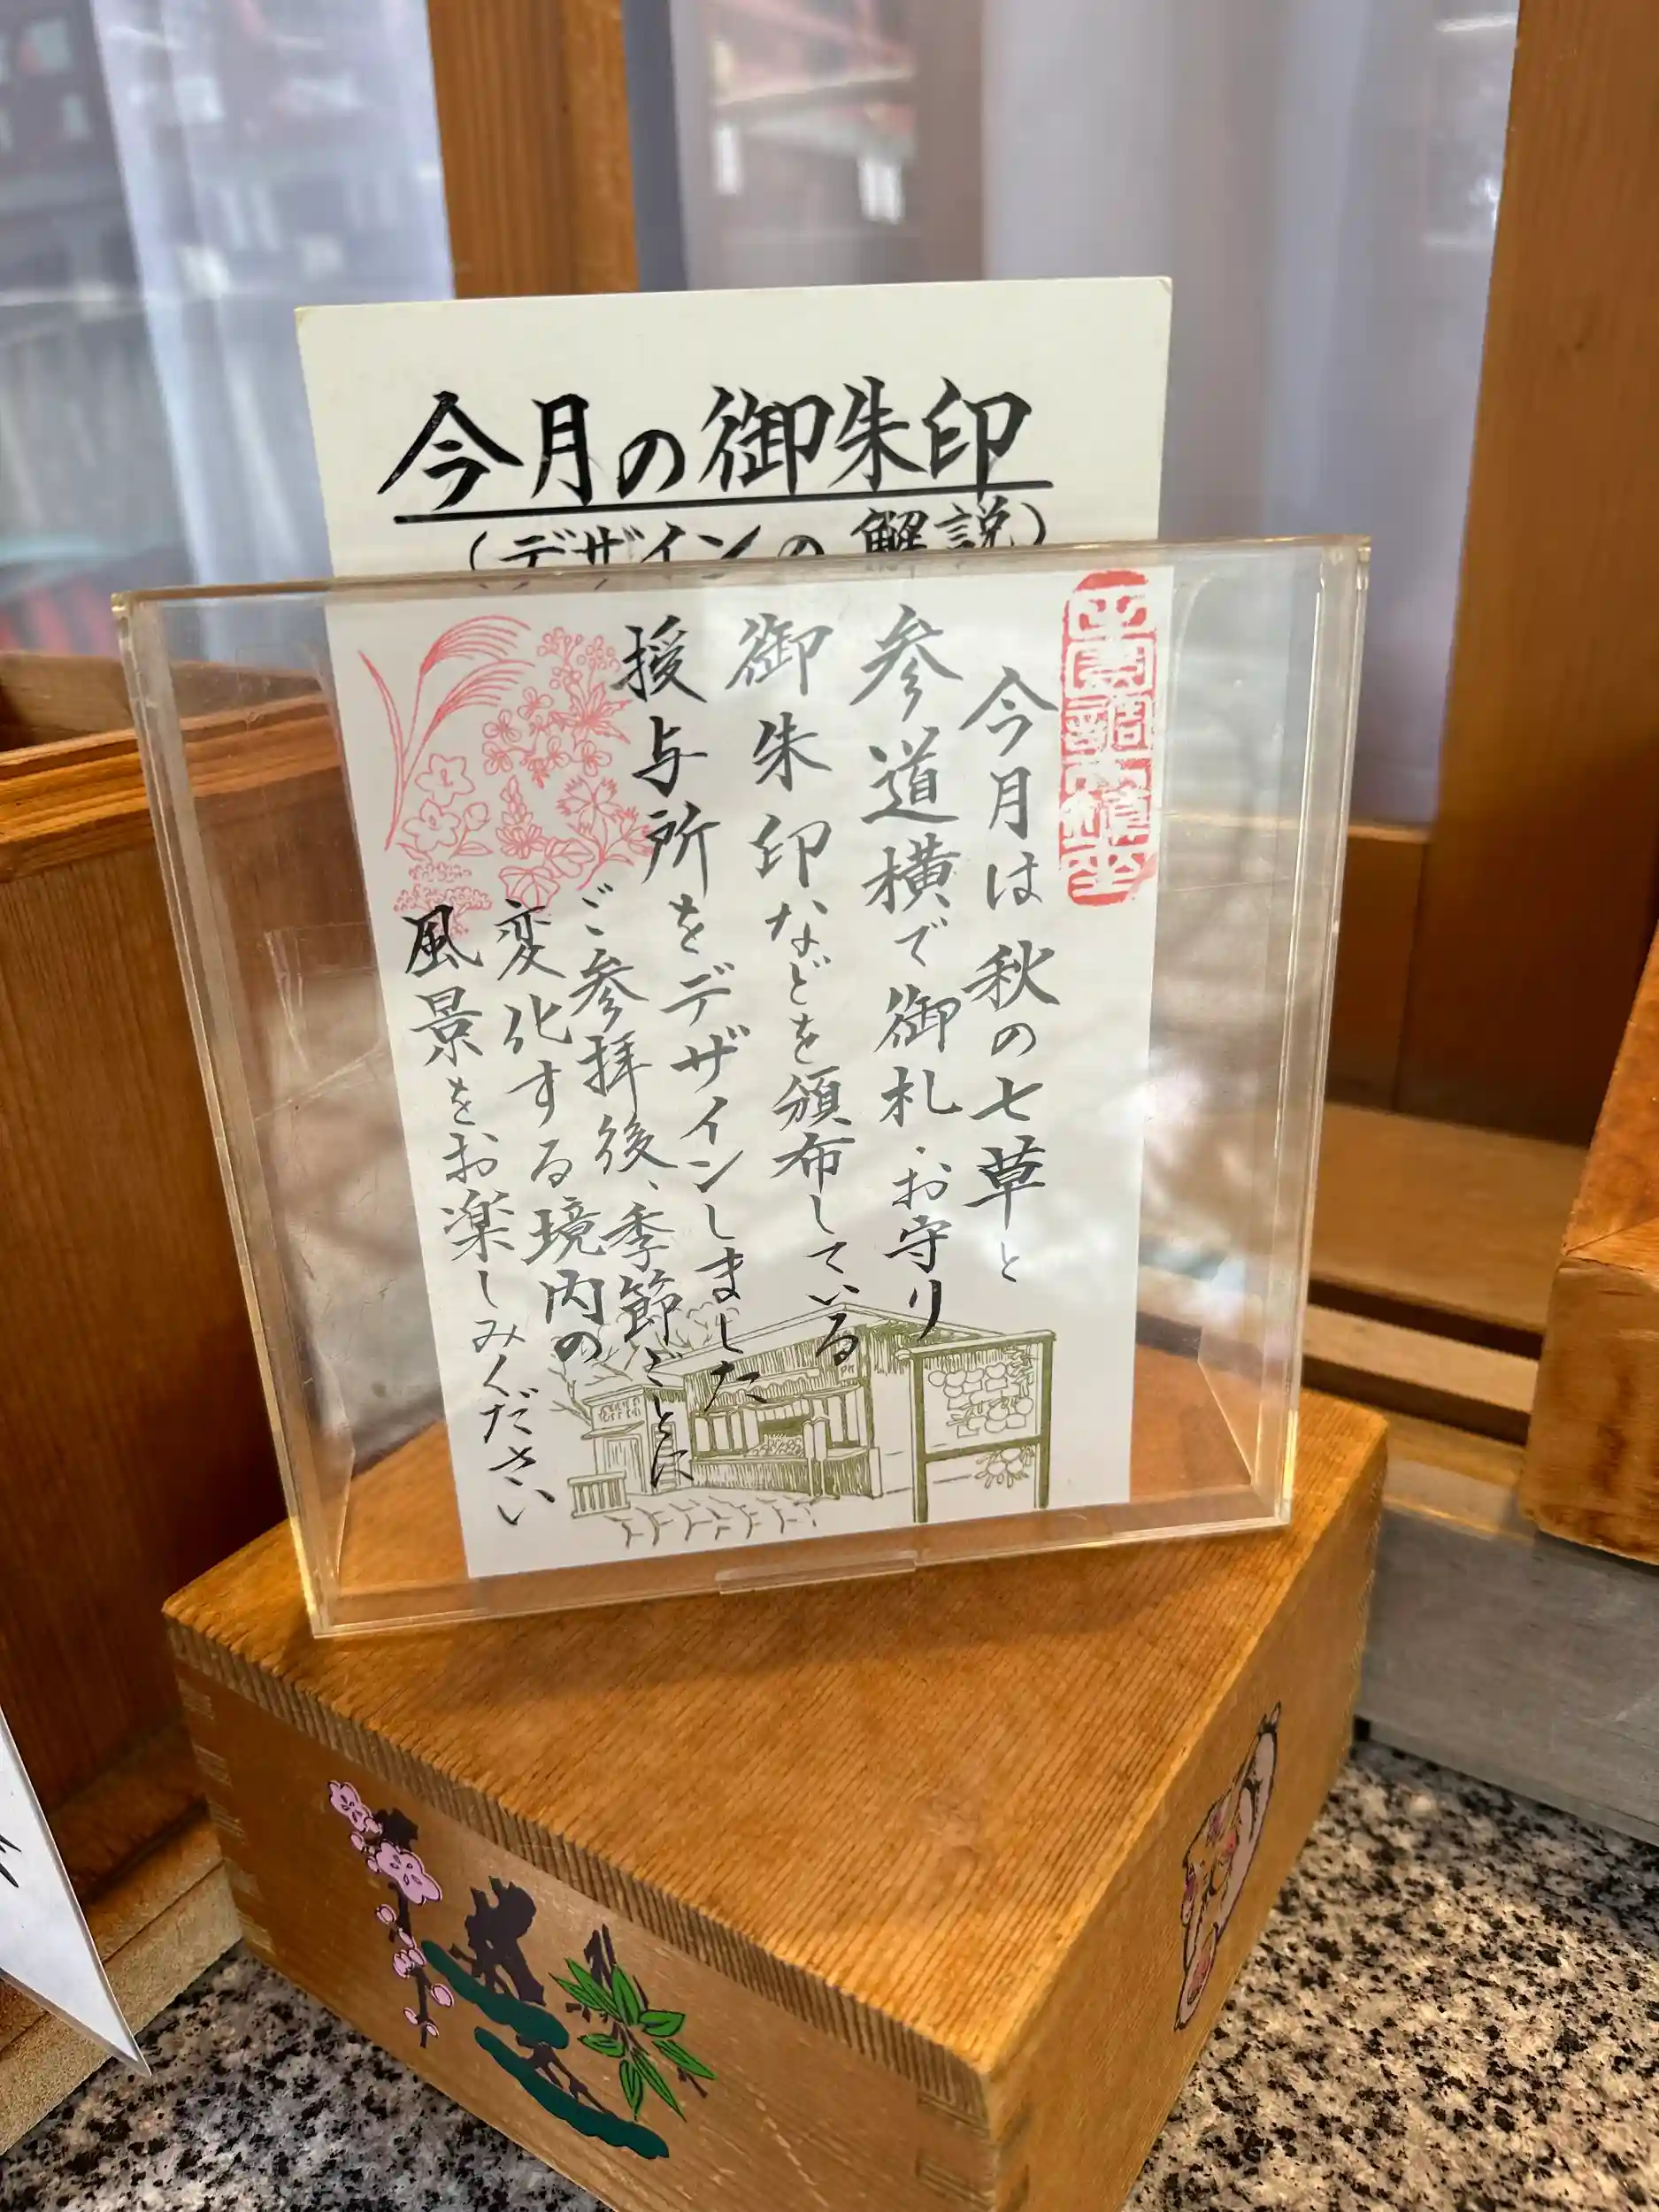 今月の御朱印
(デザインの解説)
今月は秋の七草と
参道横で御札・お守り
御朱印などを頒布している
授与所をデザインしました
ご参拝後、季節ごとに
変化する境内の
風景をお楽しみください